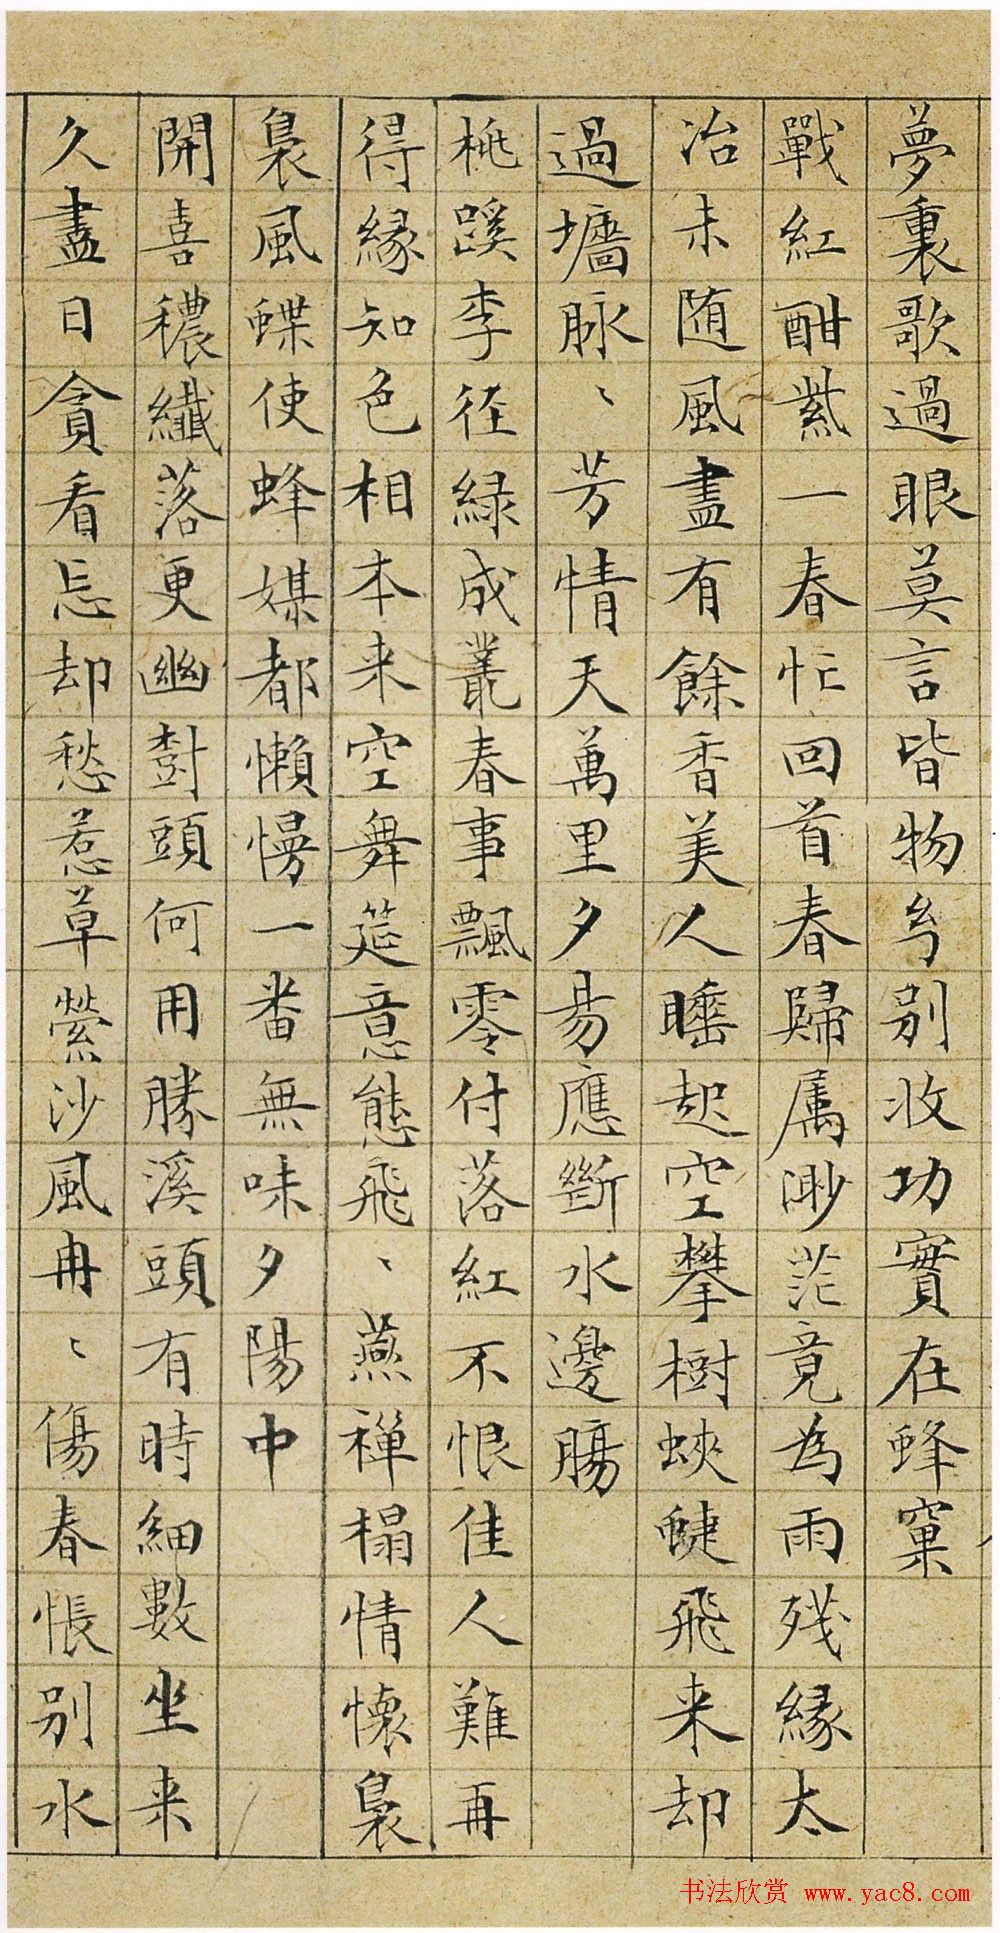 夢裏歌過眼莫言皆物兮別收功實在蜂窠
戰紅酣紫一春忙回首春歸属渺茫竟為雨残縁太
冶未随風盡有餘香美人睡起空攀樹蛺蜨飛来却
過墻脉、芳情天萬里夕易應斷水邊腸
桃蹊李径緑成叢春事飄零付落紅不恨佳人難再
得縁知色相本来空舞筵意態飛、燕禅榻情懷裊
裊風蝶使蜂媒都懶慢一番無味夕陽中
開喜穠纖落更幽樹頭何用勝溪頭有時細數坐来
久盡日貪看忘却愁惹草縈沙風冉、傷春悵别水
书法欣赏 www.yac8.com